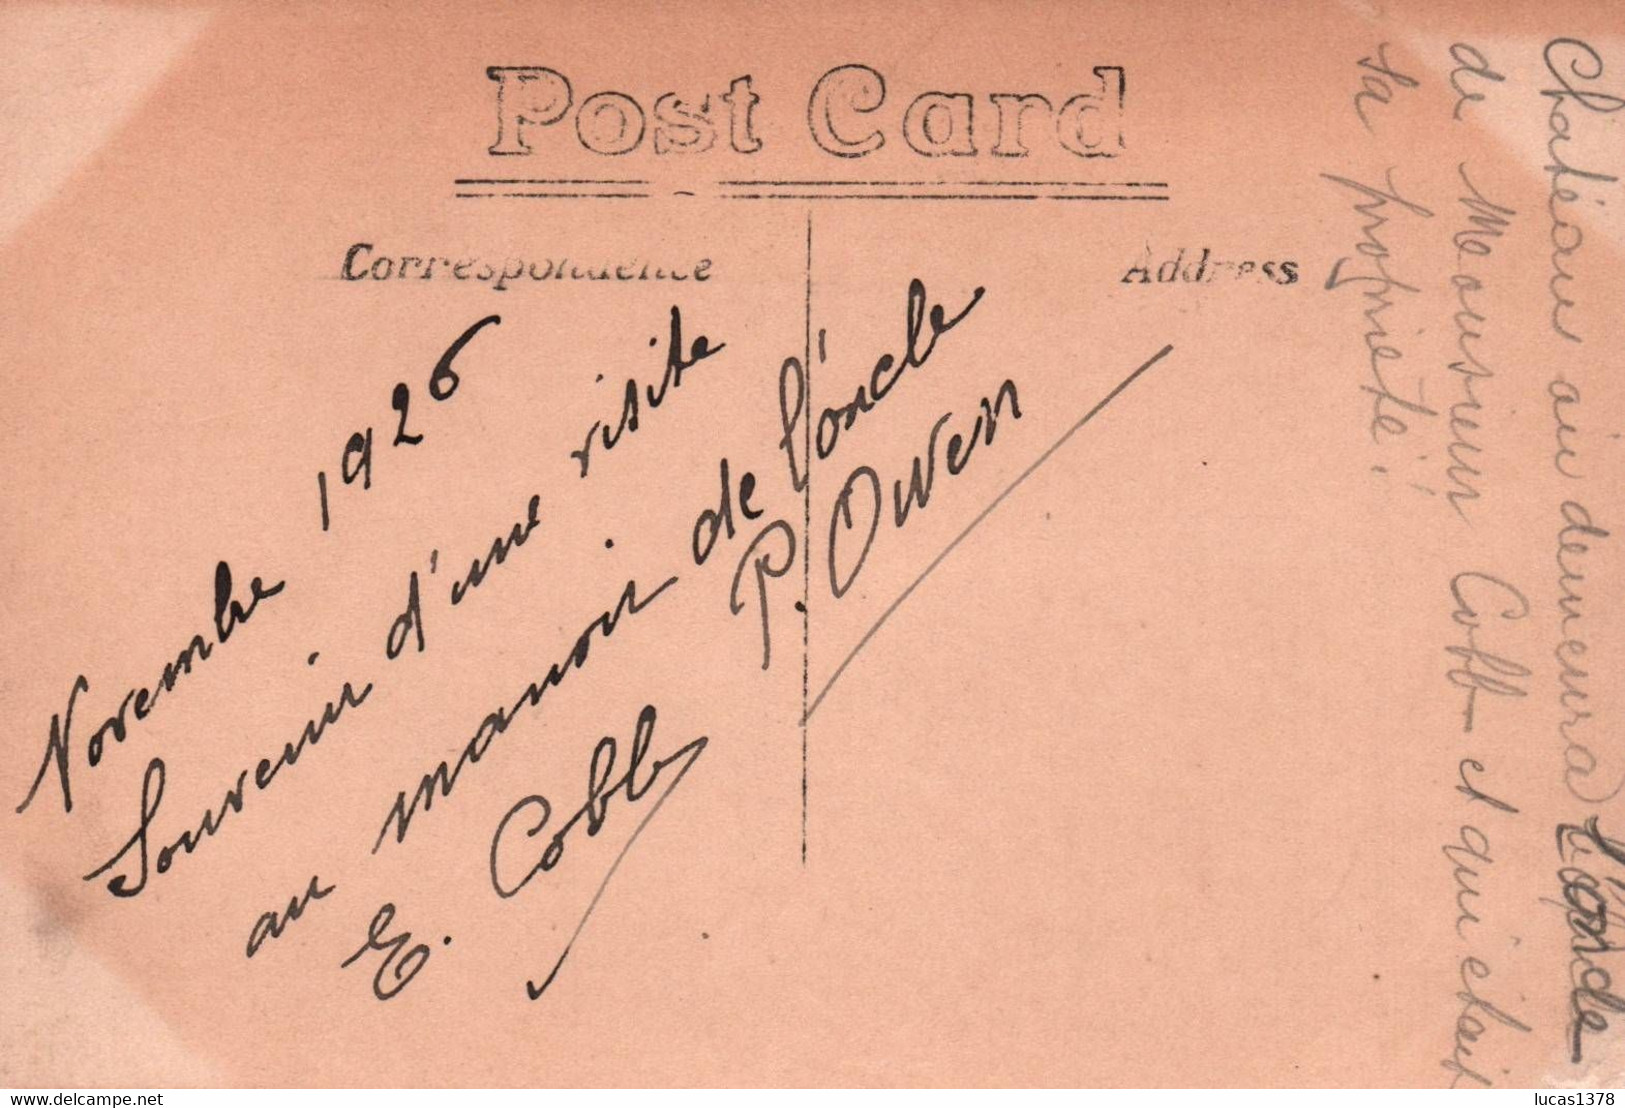 Post Card
Correspondence
Address
Novembre 1926
Souvenir d'une visite
au manoir de l'oncle
E. Cobb P. Owen
Chatéau ou demeura l'oncle
de Monsieur Cobb et qui était
sa propriété.
lucas1378